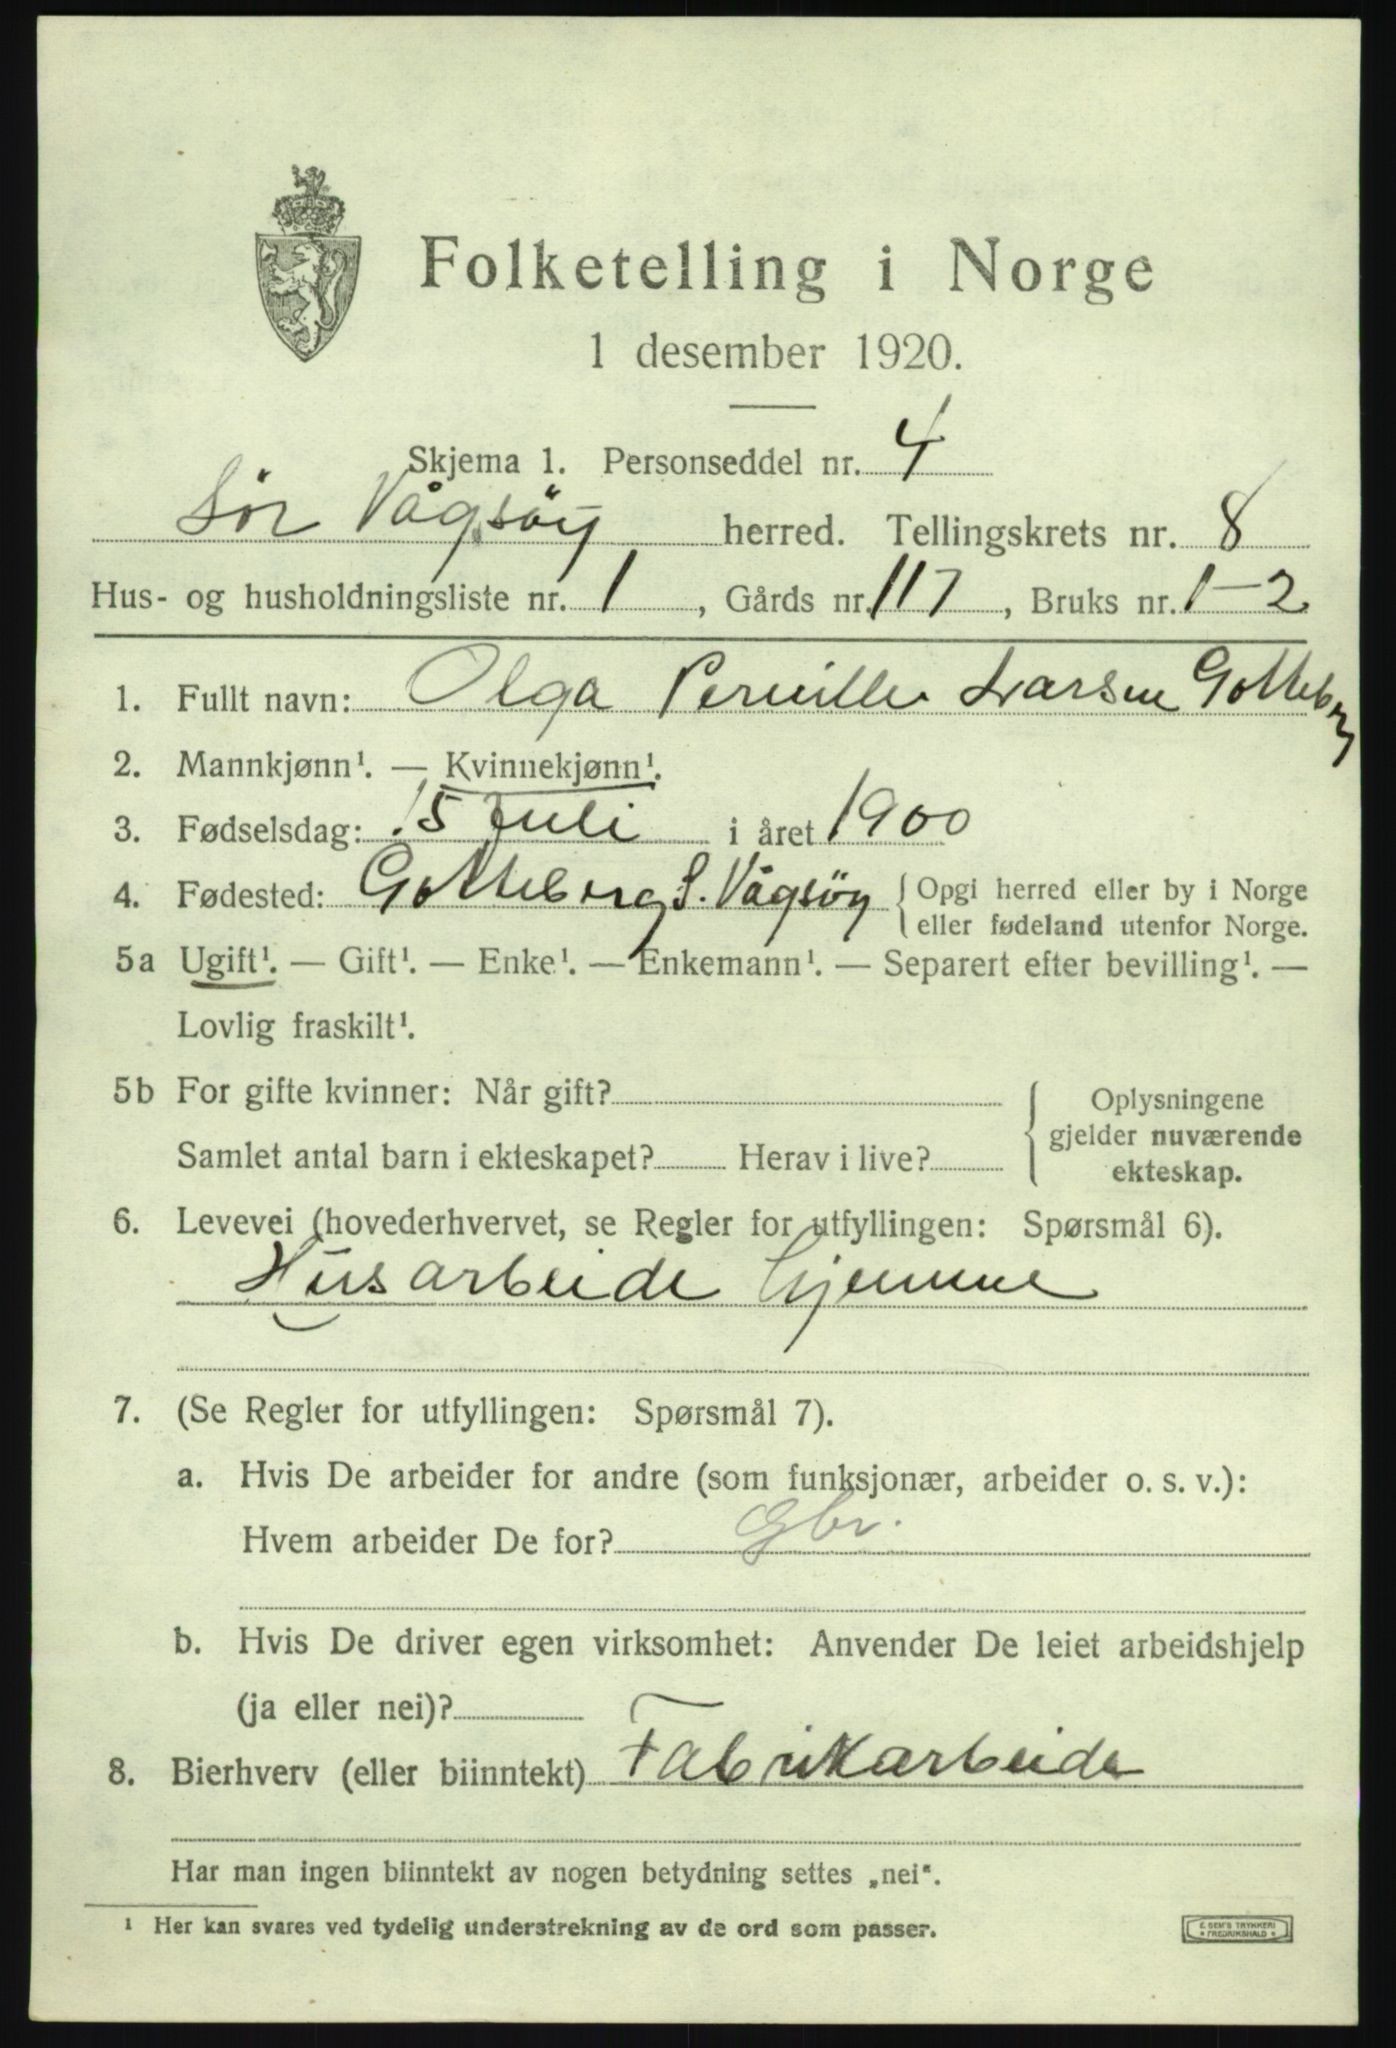 Folketelling i Norge
1 desember 1920.
Skjema 1. Personseddel nr. 4
Sör Vågsöy herred. Tellingskrets nr. 8
Hus- og husholdningsliste nr. 1, Gårds nr. 117, Bruks nr. 1-2
1. Fullt navn: Olga Pernille Larsen Gotteberg
2. Mannkjønn¹. — Kvinnekjønn¹.
3. Fødselsdag: 15 Juli i året 1900
4. Fødested: Gotteberg S. Vågsöy { Opgi herred eller by i Norge
eller fødeland utenfor Norge.
5a Ugift¹. — Gift¹. — Enke¹. — Enkemann¹. — Separert efter bevilling¹. —
Lovlig fraskilt¹.
5b For gifte kvinner: Når gift? { Oplysningene
gjelder nuværende
Samlet antal barn i ekteskapet? Herav i live?
ekteskap.
6. Levevei (hovederhvervet, se Regler for utfyllingen: Spørsmål 6).
Husarbeide hjemme
7. (Se Regler for utfyllingen: Spørsmål 7).
a. Hvis De arbeider for andre (som funksjonær, arbeider o. s. v.):
Hvem arbeider De for? Gbr.
b. Hvis De driver egen virksomhet: Anvender De leiet arbeidshjelp
(ja eller nei)?
8. Bierhverv (eller biinntekt) Fabrikarbeide
Har man ingen biinntekt av nogen betydning settes „nei“.
¹ Her kan svares ved tydelig understrekning av de ord som passer.
E. SEM'S TRYKKERI
* FREDRIKSHALD *